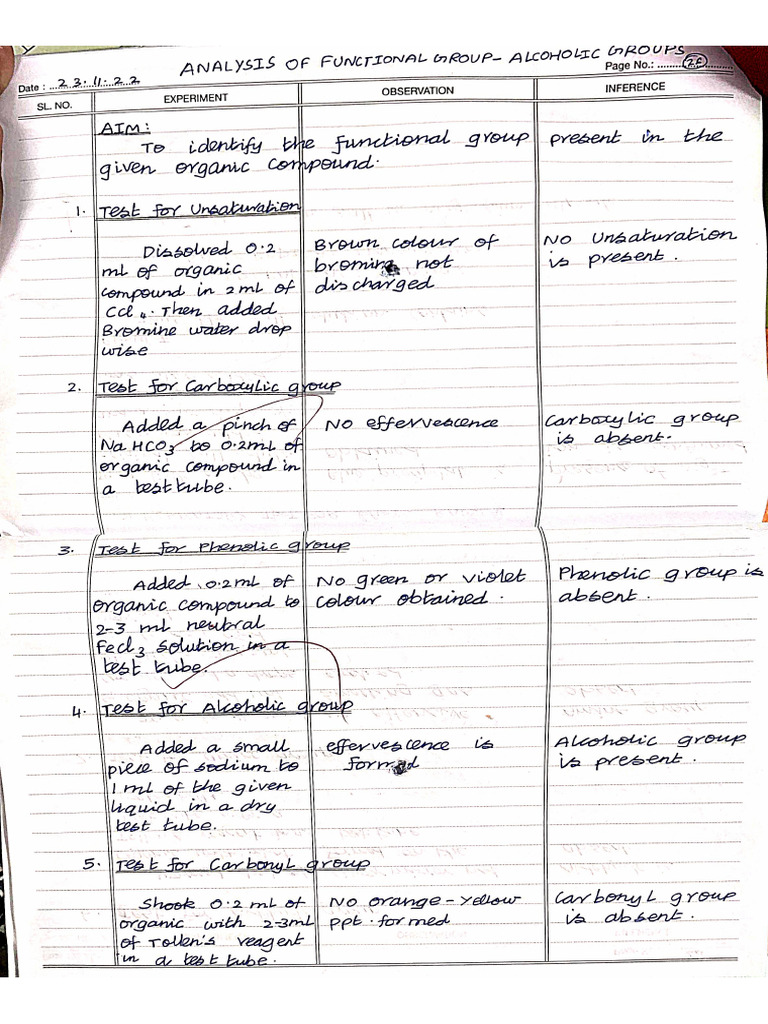 ANALYSIS OF FUNCTIONAL GROUP - ALCOHOLIC GROUPS
Date : 23.11.22
Page No.:
SL. NO. EXPERIMENT OBSERVATION INFERENCE
AIM:
To identify the functional group present in the
given organic compound.
1. Test for Unsaturation
Dissolved 0.2
ml of organic
compound in 2ml of
CCl4. Then added
Bromine water drop
wise
Brown colour of
bromine not
discharged
No Unsaturation
is present.
2. Test for Carboxylic group
Added a pinch of
NaHCO3 to 0.2ml of
organic compound in
a test tube.
No effervescence
Carboxylic group
is absent.
3. Test for Phenolic group
Added 0.2ml of
organic compound to
2-3 ml neutral
FeCl3 solution in a
test tube.
No green or violet
colour obtained.
Phenolic group is
absent.
4. Test for Alcoholic group
Added a small
piece of sodium to
1 ml of the given
liquid in a dry
test tube.
effervescence is
formed
Alcoholic group
is present.
5. Test for Carbonyl group
Shook 0.2 ml of
organic with 2-3ml
of Tollen's reagent
in a test tube.
No orange-yellow
ppt. formed
Carbonyl group
is absent.